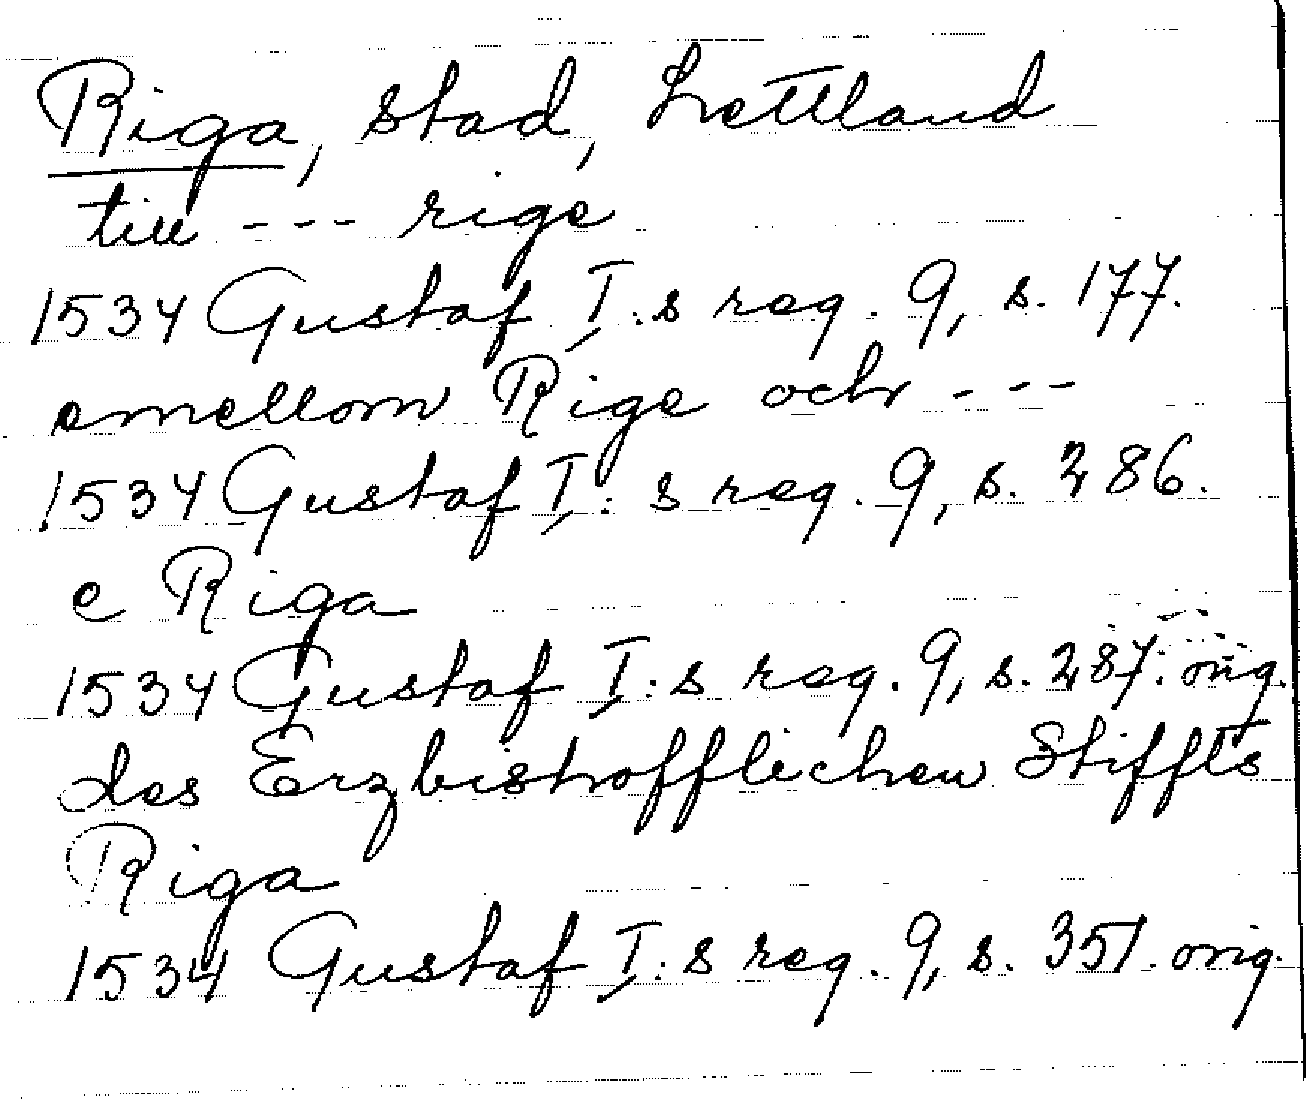 Riga, stad, Lettland
till --- rige
1534 Gustaf I:s reg. 9, s. 177.
emellom Rige och ---
1534 Gustaf I:s reg. 9, s. 286.
e Riga
1534 Gustaf I:s reg. 9, s. 287. orig.
des Erzbishofflichen Stiffts
Riga
1534 Gustaf I:s reg. 9, s. 351. orig.